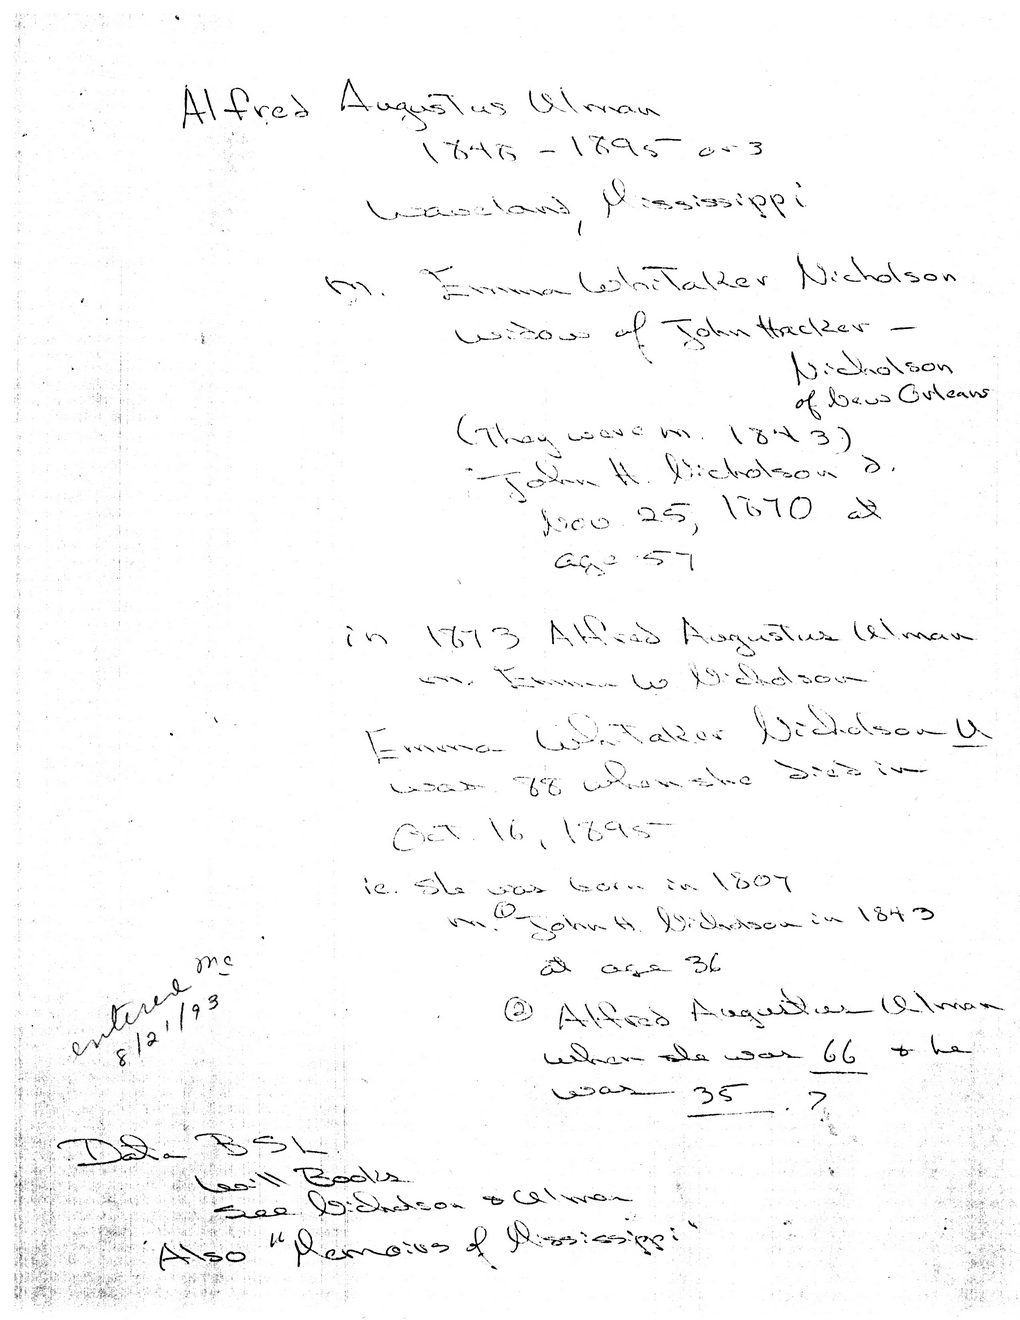 Alfred Augustus Ulman
1848 - 1895 or 3
Waveland, Mississippi
m. Emma Whitaker Nicholson
widow of John Hacker -
Nicholson
of New Orleans
(They were m. 1843)
John H. Nicholson d.
Nov 25, 1870 at
age 57
in 1873 Alfred Augustus Ulman
m. Emma W Nicholson
Emma Whitaker Nicholson U
was 88 when she died in
Oct. 16, 1895
ie. She was born in 1807
m. ① John H. Nicholson in 1843
at age 36
② Alfred Augustus Ulman
when she was 66 & he
was 35. ?
entered mc
8/21/93
Data BSL
Will Books
See Nicholson & Ulman
Also "Memoirs of Mississippi"